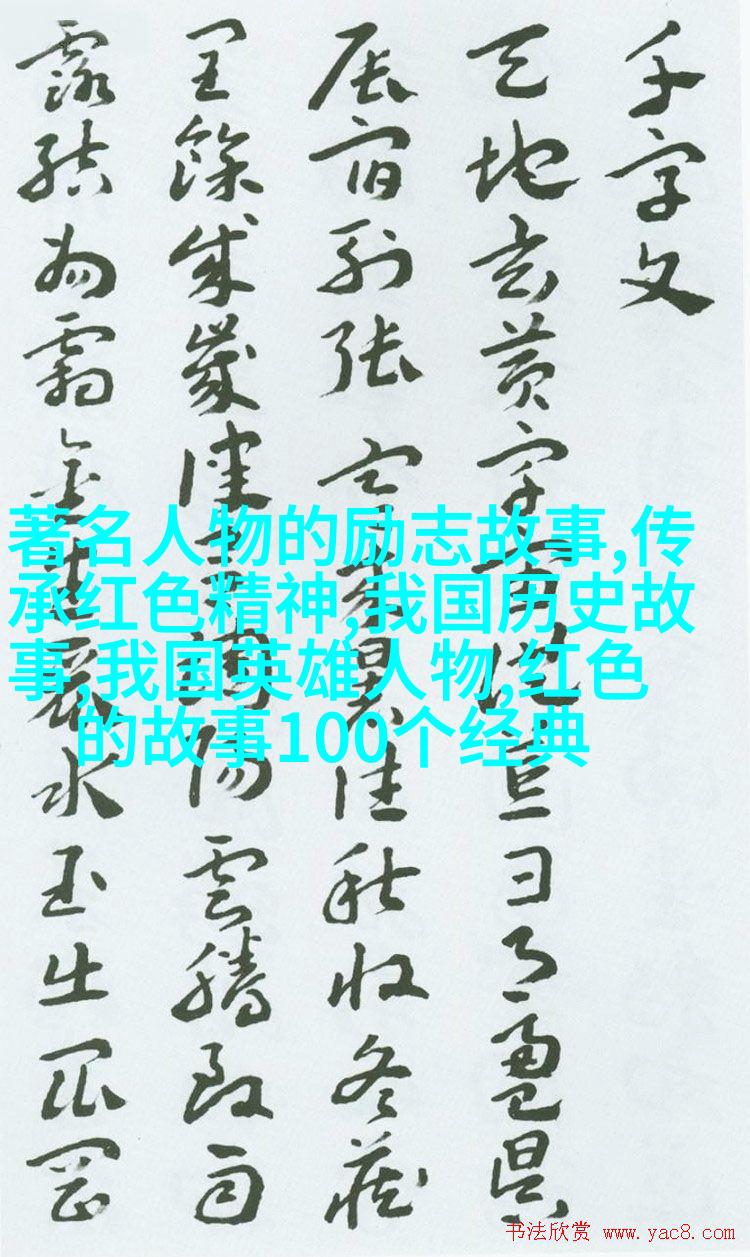 千字文
天地玄黄宇宙洪荒日月盈昃
辰宿列張寒来暑往秋收冬藏
閏餘成歲律吕調陽雲騰致雨
露結為霜金生麗水玉出崑岡
著名人物的励志故事,传
承红色精神,我国历史故
事,我国英雄人物,红色
的故事100个经典
书法欣赏 www.yac8.com